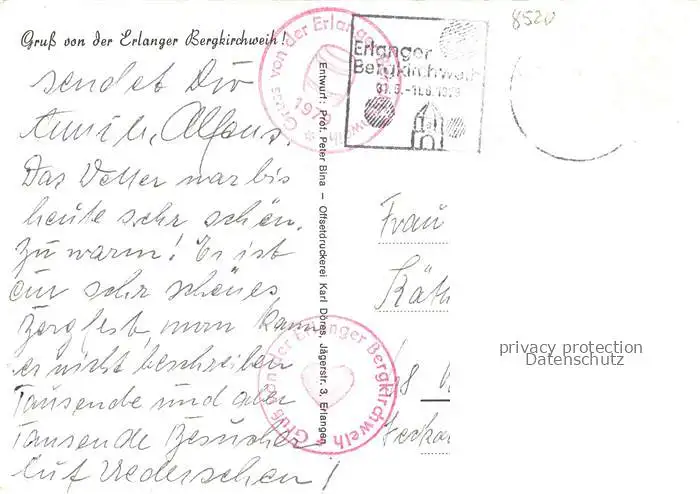 Gruß von der Erlanger Bergkirchweih!
8520
Erlanger
Bergkirchweih
31.5.-11.6.1979
Gruss von der Erlanger Bergkirchweih
1979
sendet Dir
Alfons.
Das Wetter war bis
heute sehr schön.
Zu warm! Es ist
ein sehr schönes
Bergfest, man kann
es nicht beschreiben
Tausende und aber
Tausende Besucher
Auf Wiedersehen!
Entwurf: Prof. Peter Bina – Offsetdruckerei Karl Döres, Jägerstr. 3, Erlangen
Gruß von der Erlanger Bergkirchweih
Frau
Käth
privacy protection
Datenschutz